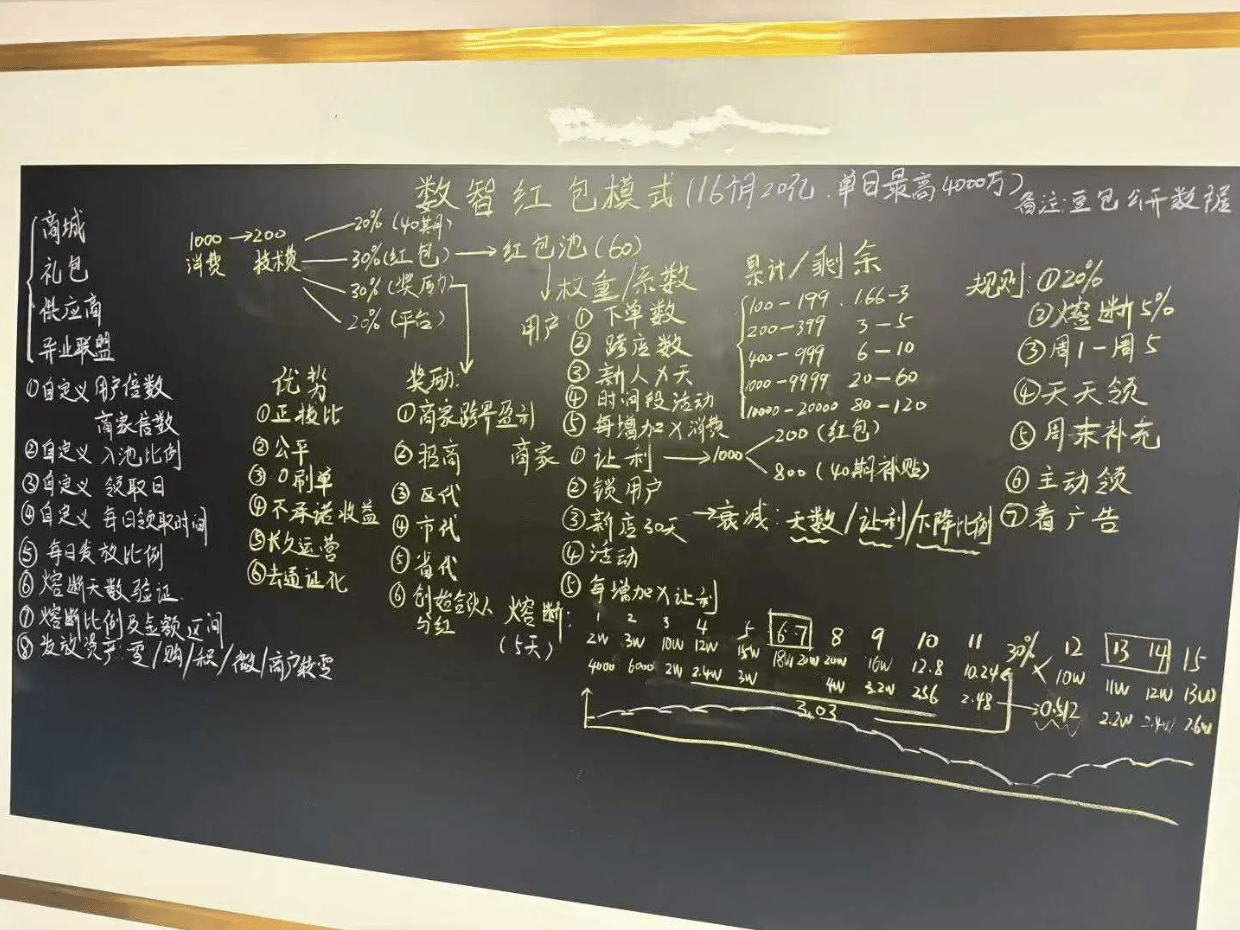 数智红包模式(16个月20亿.单日最高4000万)
备注:豆包公开数据
商城
礼包
供应商
异业联盟
①自定义用户倍数
商家倍数
②自定义 入池比例
③自定义 领取日
④自定义 每日领取时间
⑤每日发放比例
⑥熔断天数验证
⑦熔断比例及金额区间
⑧发放资产:零/购/积/微/商户款零
1000 → 200
消费 技术费
20%(40期)
30%(红包) → 红包池(60)
30%(奖励)
20%(平台)
优势
①正技比
②公平
③0刷单
④不承诺收益
⑤长久运营
⑥去通证化
奖励:
①商家跨界盈利
②招商
③区代
④市代
⑤省代
⑥创始合伙人
分红
权重/系数
用户 ①下单数
②跨店数
③新人X天
④时间段活动
⑤每增加X消费
商家 ①让利 → 1000
200(红包)
800(40期补贴)
②锁用户
③新店30天 → 衰减:天数/让利/下降比例
④活动
⑤每增加X让利
累计/剩余
100-199 . 1.66-3
200-399 3-5
400-999 6-10
1000-9999 20-60
10000-20000 80-120
规则:①20%
②熔断5%
③周1-周5
④天天领
⑤周末补充
⑥主动领
⑦看广告
熔断:
(5天)
1 2 3 4 5 6.7 8 9 10 11 30% 12 13 14 15
2W 3W 10W 12W 15W 18W 20W 20W 16W 12.8 10.24 X 10W 11W 12W 13W
4000 6000 2W 2.4W 3W 4W 3.2W 256 2.48 → 0.512 2.2W 2.4W 2.6W
3.03